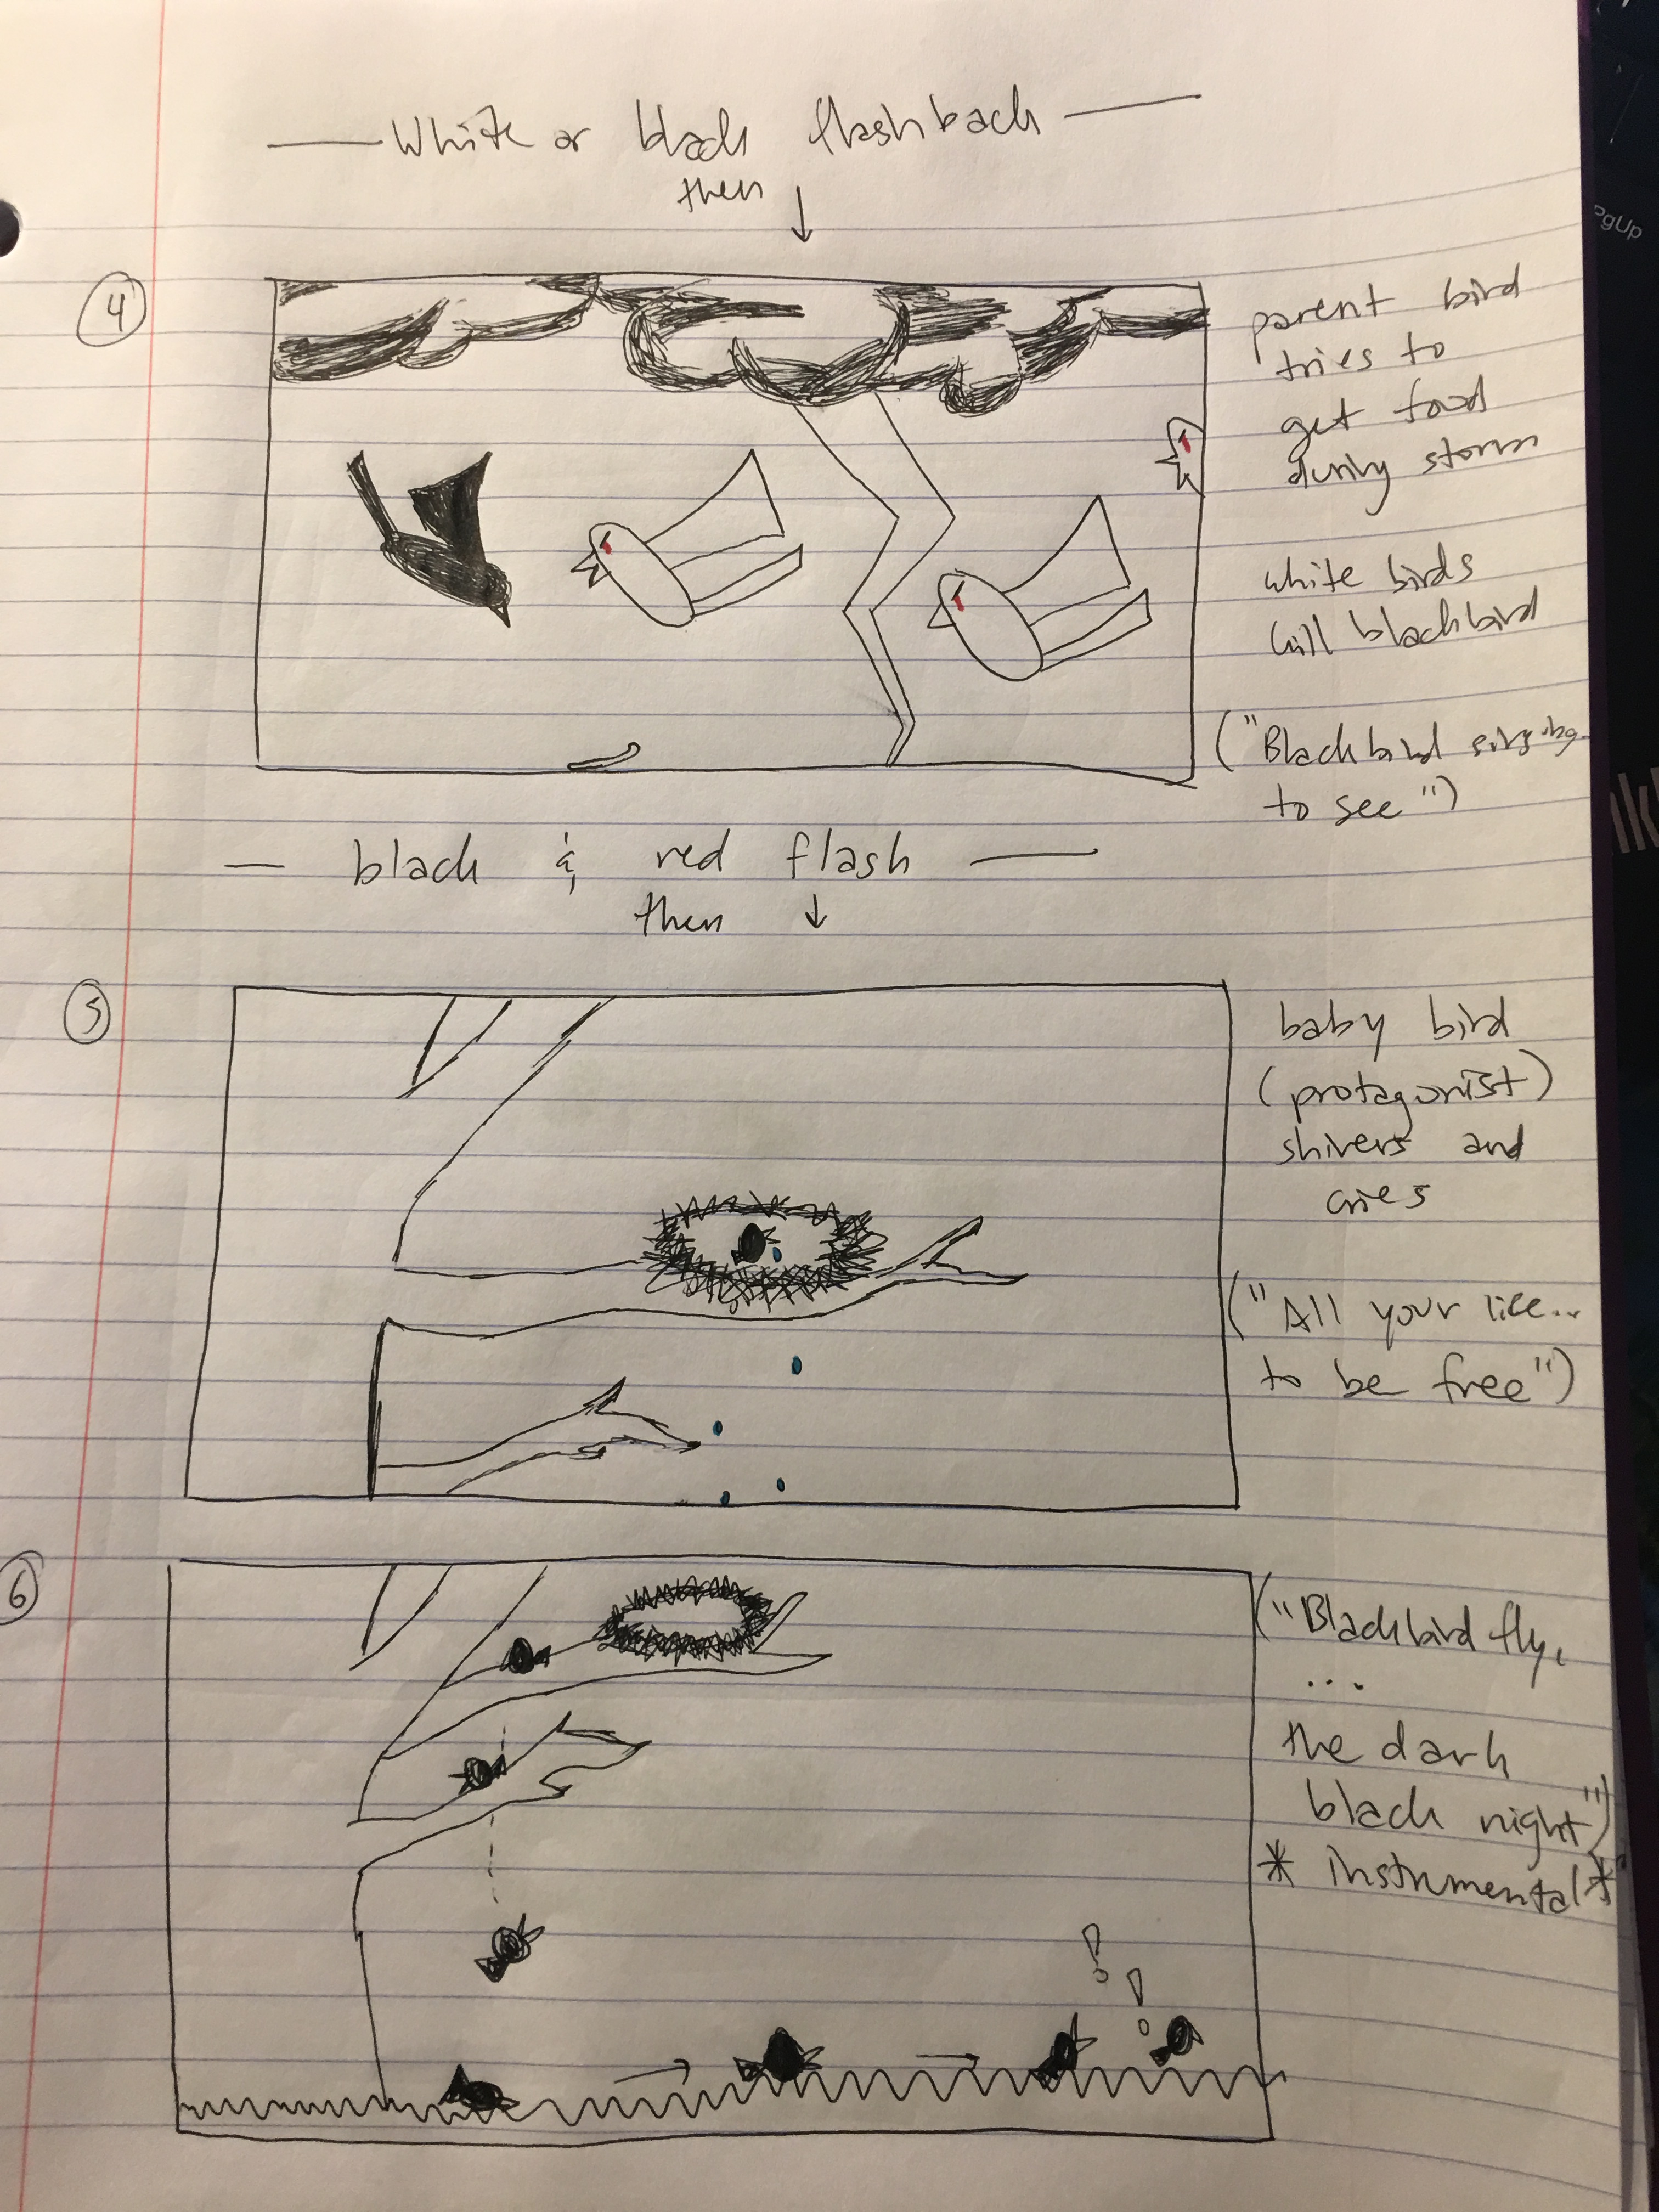 — White or black flashback —
then ↓
4
parent bird
tries to
get food
during storm
white birds
kill blackbird
("Blackbird singing
to see")
— black & red flash —
then ↓
5
baby bird
(protagonist)
shivers and
cries
("All your life...
to be free")
6
("Blackbird fly,
...
the dark
black night")
* instrumental *
! !
PgUp